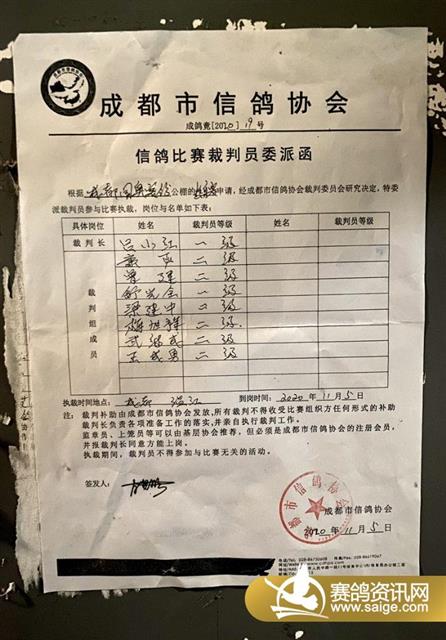 成都市信鸽协会
成鸽竞[2020]19号
信鸽比赛裁判员委派函
根据 成都 公棚的 申请，经成都市信鸽协会裁判委员会研究决定，特委
派裁判员参与比赛执裁，岗位与名单如下表：
具体岗位 姓名 裁判员等级 姓名 裁判员等级
裁判长 吕小江 一级
裁判组成员
戴 二级
曾建 二级
舒 二级
建中 二级
祥 二级
武 成 二级
王成勇 二级
执裁时间地点： 成都 温江 到岗时间： 2020 11月5日
注：裁判补助由成都市信鸽协会发放，所有裁判不得收受比赛组织方任何形式的补助
裁判长负责各项准备工作的落实，并亲自执行裁判工作。
监章员、上笼员等可以由基层协会推荐，但必须是成都市信鸽协会的注册会员，
并报裁判长同意方能上岗。
执裁期间，裁判员不得参加与比赛无关的活动。
签发人：
成都市信鸽协会
成都市信鸽协会
2020年11月5日
赛鸽资讯网
www.saige.com